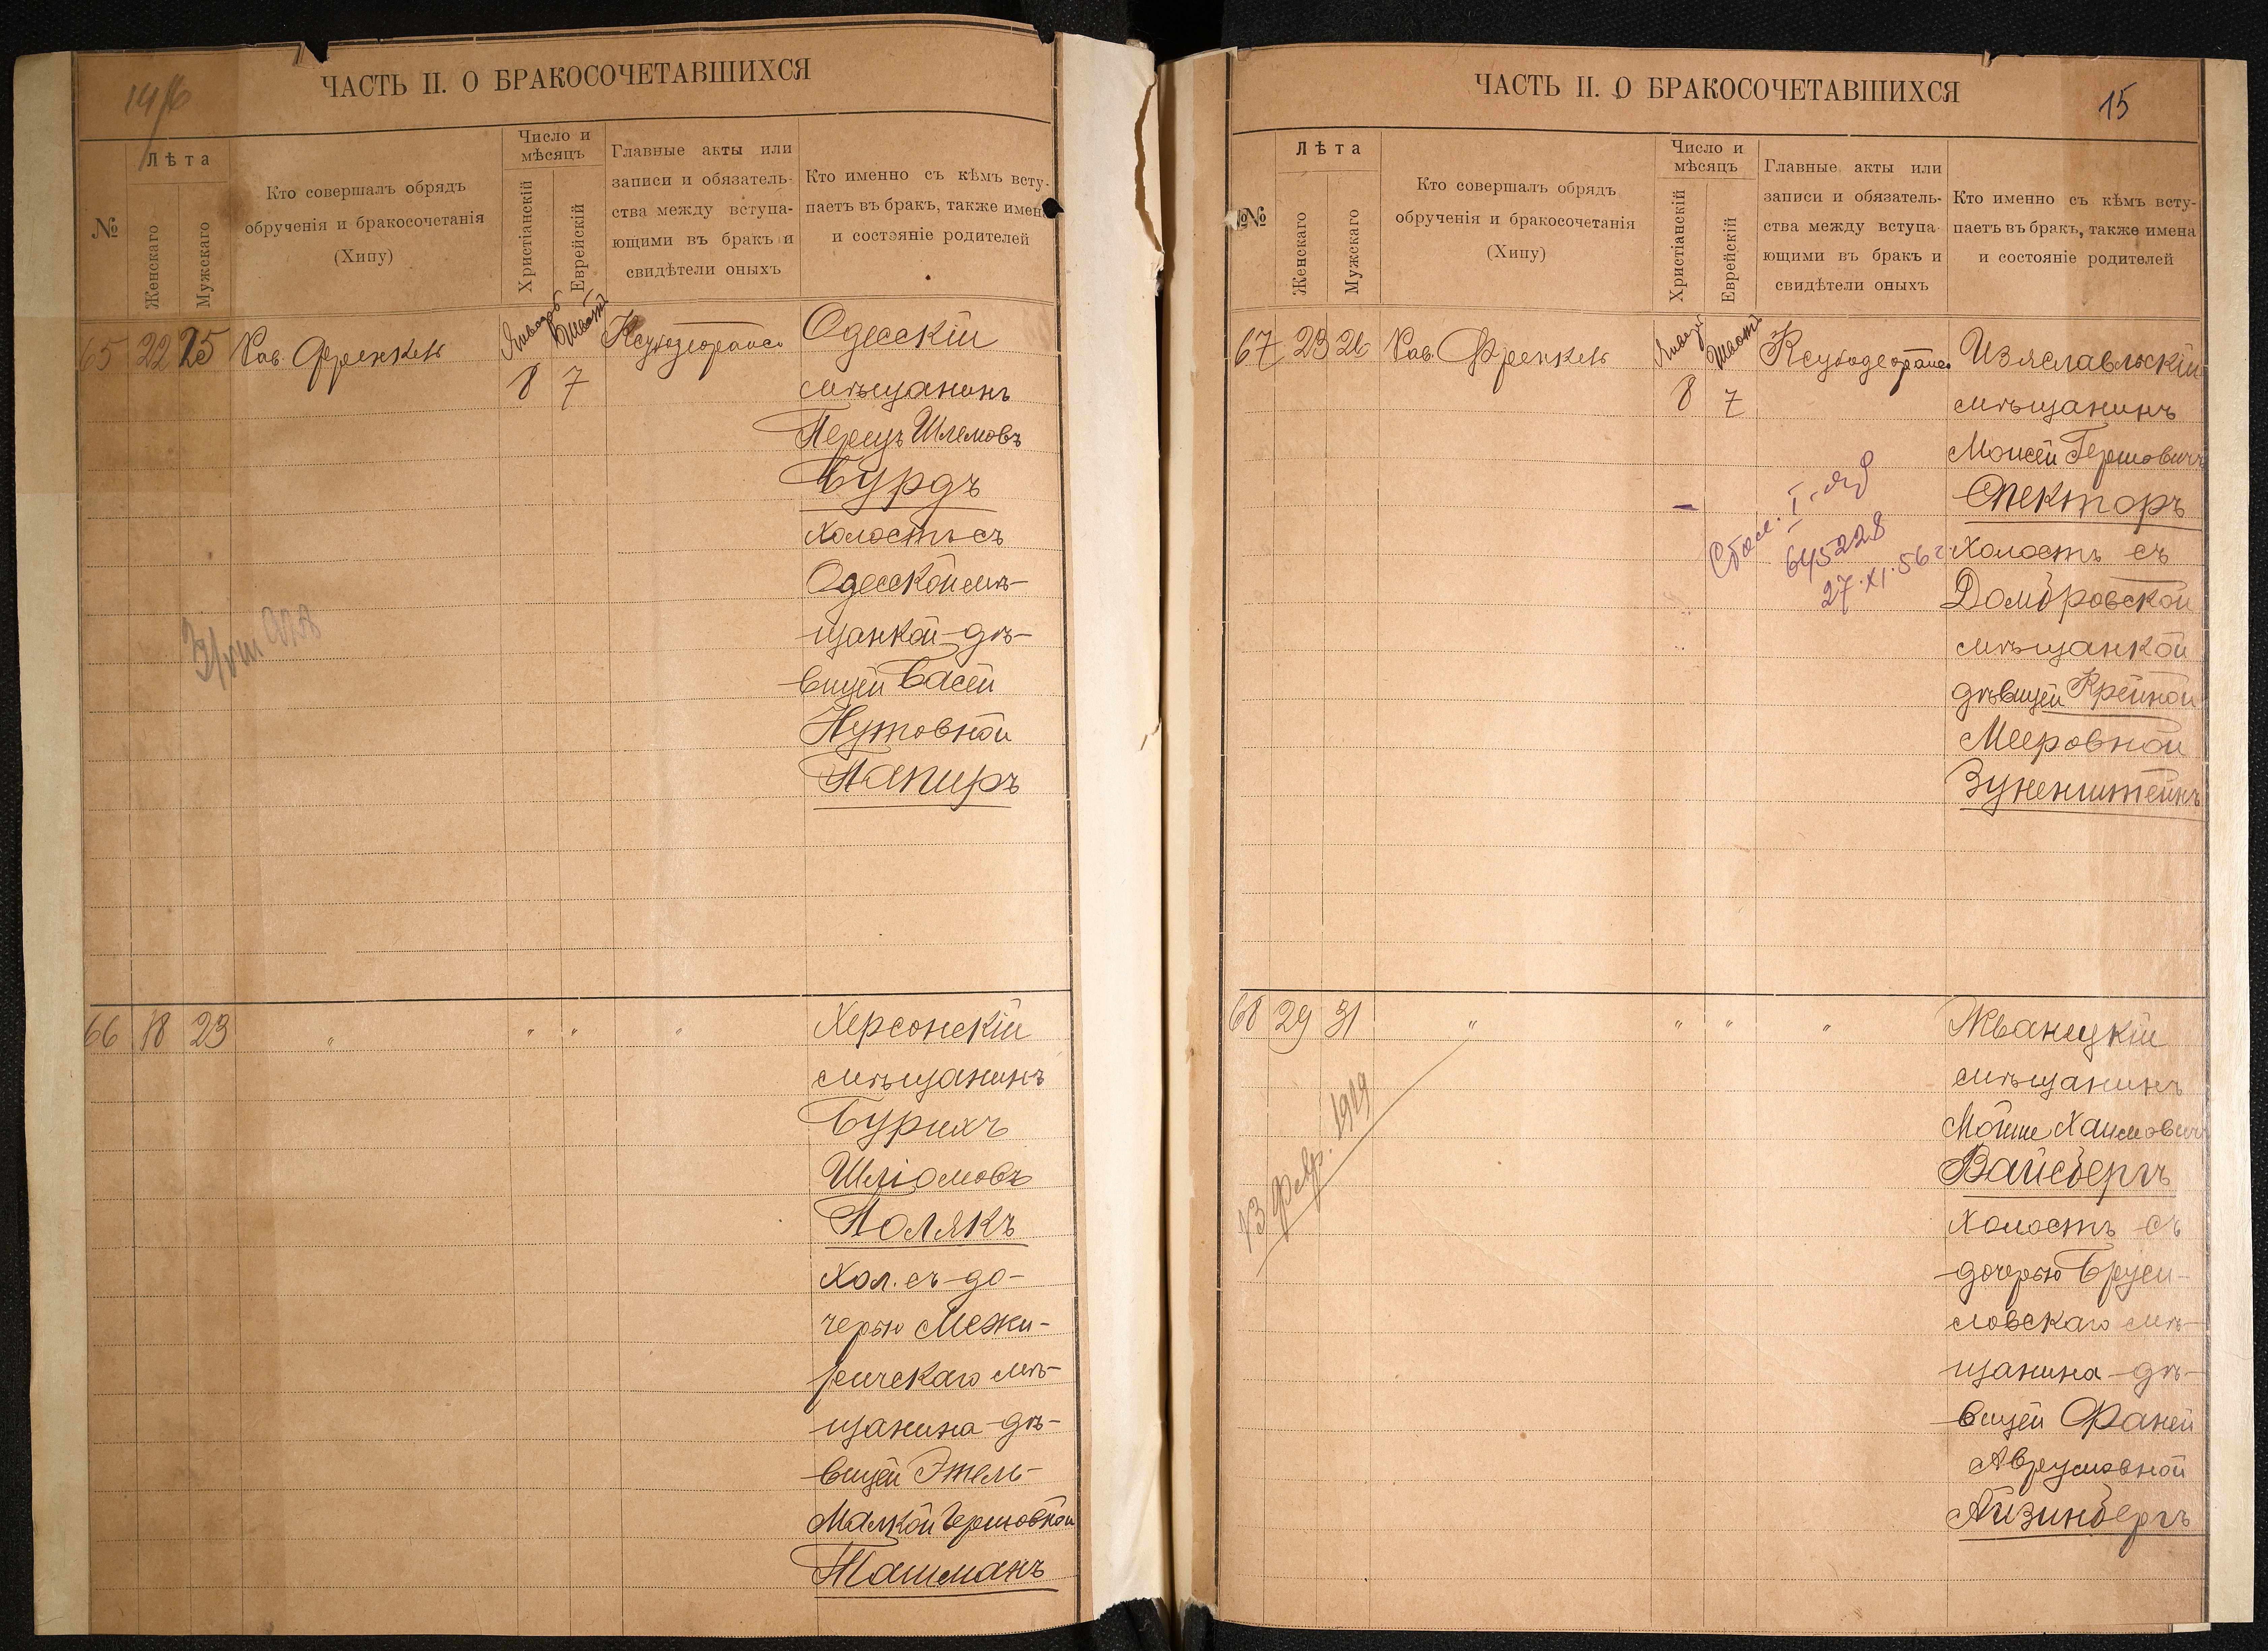 14
ЧАСТЬ II. О БРАКОСОЧЕТАВШИХСЯ
№
Лѣта
Женскаго
Мужскаго
Кто совершалъ обрядъ
обрученія и бракосочетанія
(Хипу)
Число и
мѣсяцъ
Христіанскій
Еврейскій
Главные акты или
записи и обязатель-
ства между вступа-
ющими въ бракъ и
свидѣтели оныхъ
Кто именно съ кѣмъ всту-
паетъ въ бракъ, также имена
и состояніе родителей
65 22 25 Рав. Френкель
8 7
Одесскій
мѣщанинъ
Перецъ Шлемовъ
Бурдъ
холостъ съ
Одесской мѣ-
щанкой дѣ-
вицей Басей
Нутовной
Папиръ
66 18 23 " " " "
Херсонскій
мѣщанинъ
Бурихъ
Шліомовъ
Полякъ
хол. съ до-
черью Межи-
ричскаго мѣ-
щанина дѣ-
вицей Этель-
Малкой Гершовной
Ташманъ
ЧАСТЬ II. О БРАКОСОЧЕТАВШИХСЯ
15
№№
Лѣта
Женскаго
Мужскаго
Кто совершалъ обрядъ
обрученія и бракосочетанія
(Хипу)
Число и
мѣсяцъ
Христіанскій
Еврейскій
Главные акты или
записи и обязатель-
ства между вступа-
ющими въ бракъ и
свидѣтели оныхъ
Кто именно съ кѣмъ всту-
паетъ въ бракъ, также имена
и состояніе родителей
67 23 26 Рав. Френкель
8 7
Изяславльскій
мѣщанинъ
Моисей Гершовичъ
Спекторъ
холостъ съ
Домбровской
мѣщанкой
дѣвицей Крейной
Мееровной
Зуненштейнъ
645228
27.XI.56 г.
68 29 31 " " " "
Жванецкій
мѣщанинъ
Мойше Хаимовичъ
Вайсбергъ
холостъ съ
дочерью Бруси-
ловскаго мѣ-
щанина дѣ-
вицей Фаней
Аврумовной
Айзинбергъ
13 февр. 1919